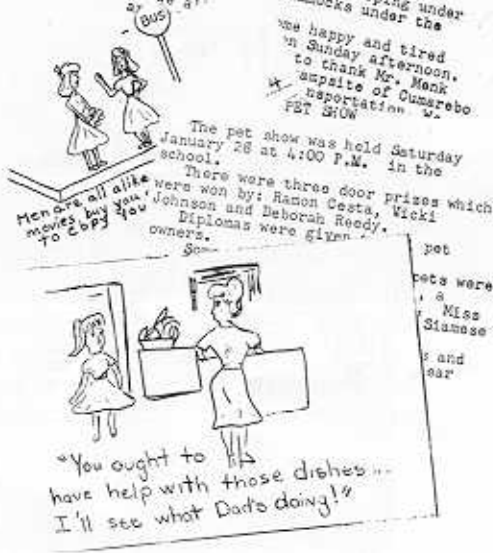 BUS
under
under the
happy and tired
Sunday afternoon.
to thank Mr. Monk
campsite of Cumarebo
nsportation.
PET SHOW
The pet show was held Saturday
January 26 at 4:00 P.M. in the
school.
There were three door prizes which
were won by: Ramon Cesta, Vicki
Johnson and Deborah Reedy.
Diplomas were given
pet
owners.
Som
pets were
, a
Miss
Siamese
s and
ear
Men are all alike
movies, buy you,
to you
"You ought to
have help with those dishes...
I'll see what Dad's doing!"